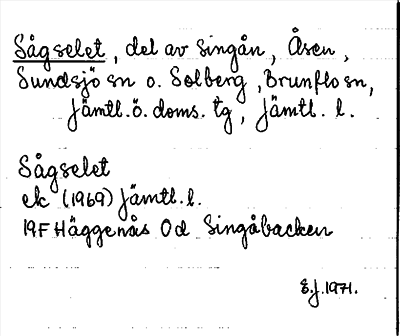 Sågselet, del av Singån, Åsen,
Sundsjö sn o. Solberg, Brunflo sn,
Jämtl.ö. doms. tg, Jämtl. l.
Sågselet
ek (1969) Jämtl.l.
19F Häggenås Od Singåbacken
E.J. 1971.